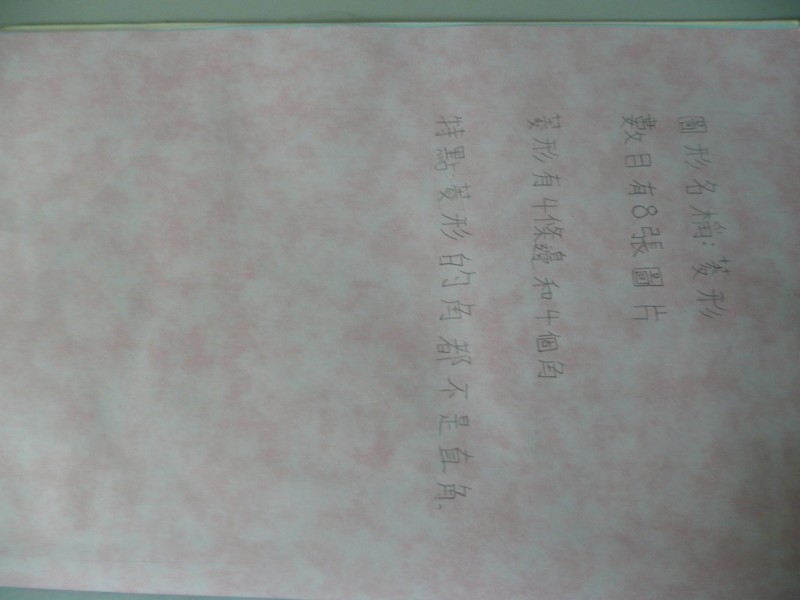 圖形名稱:菱形
數目有8張圖片
菱形有4條邊和4個角
特點菱形的角都不是直角.